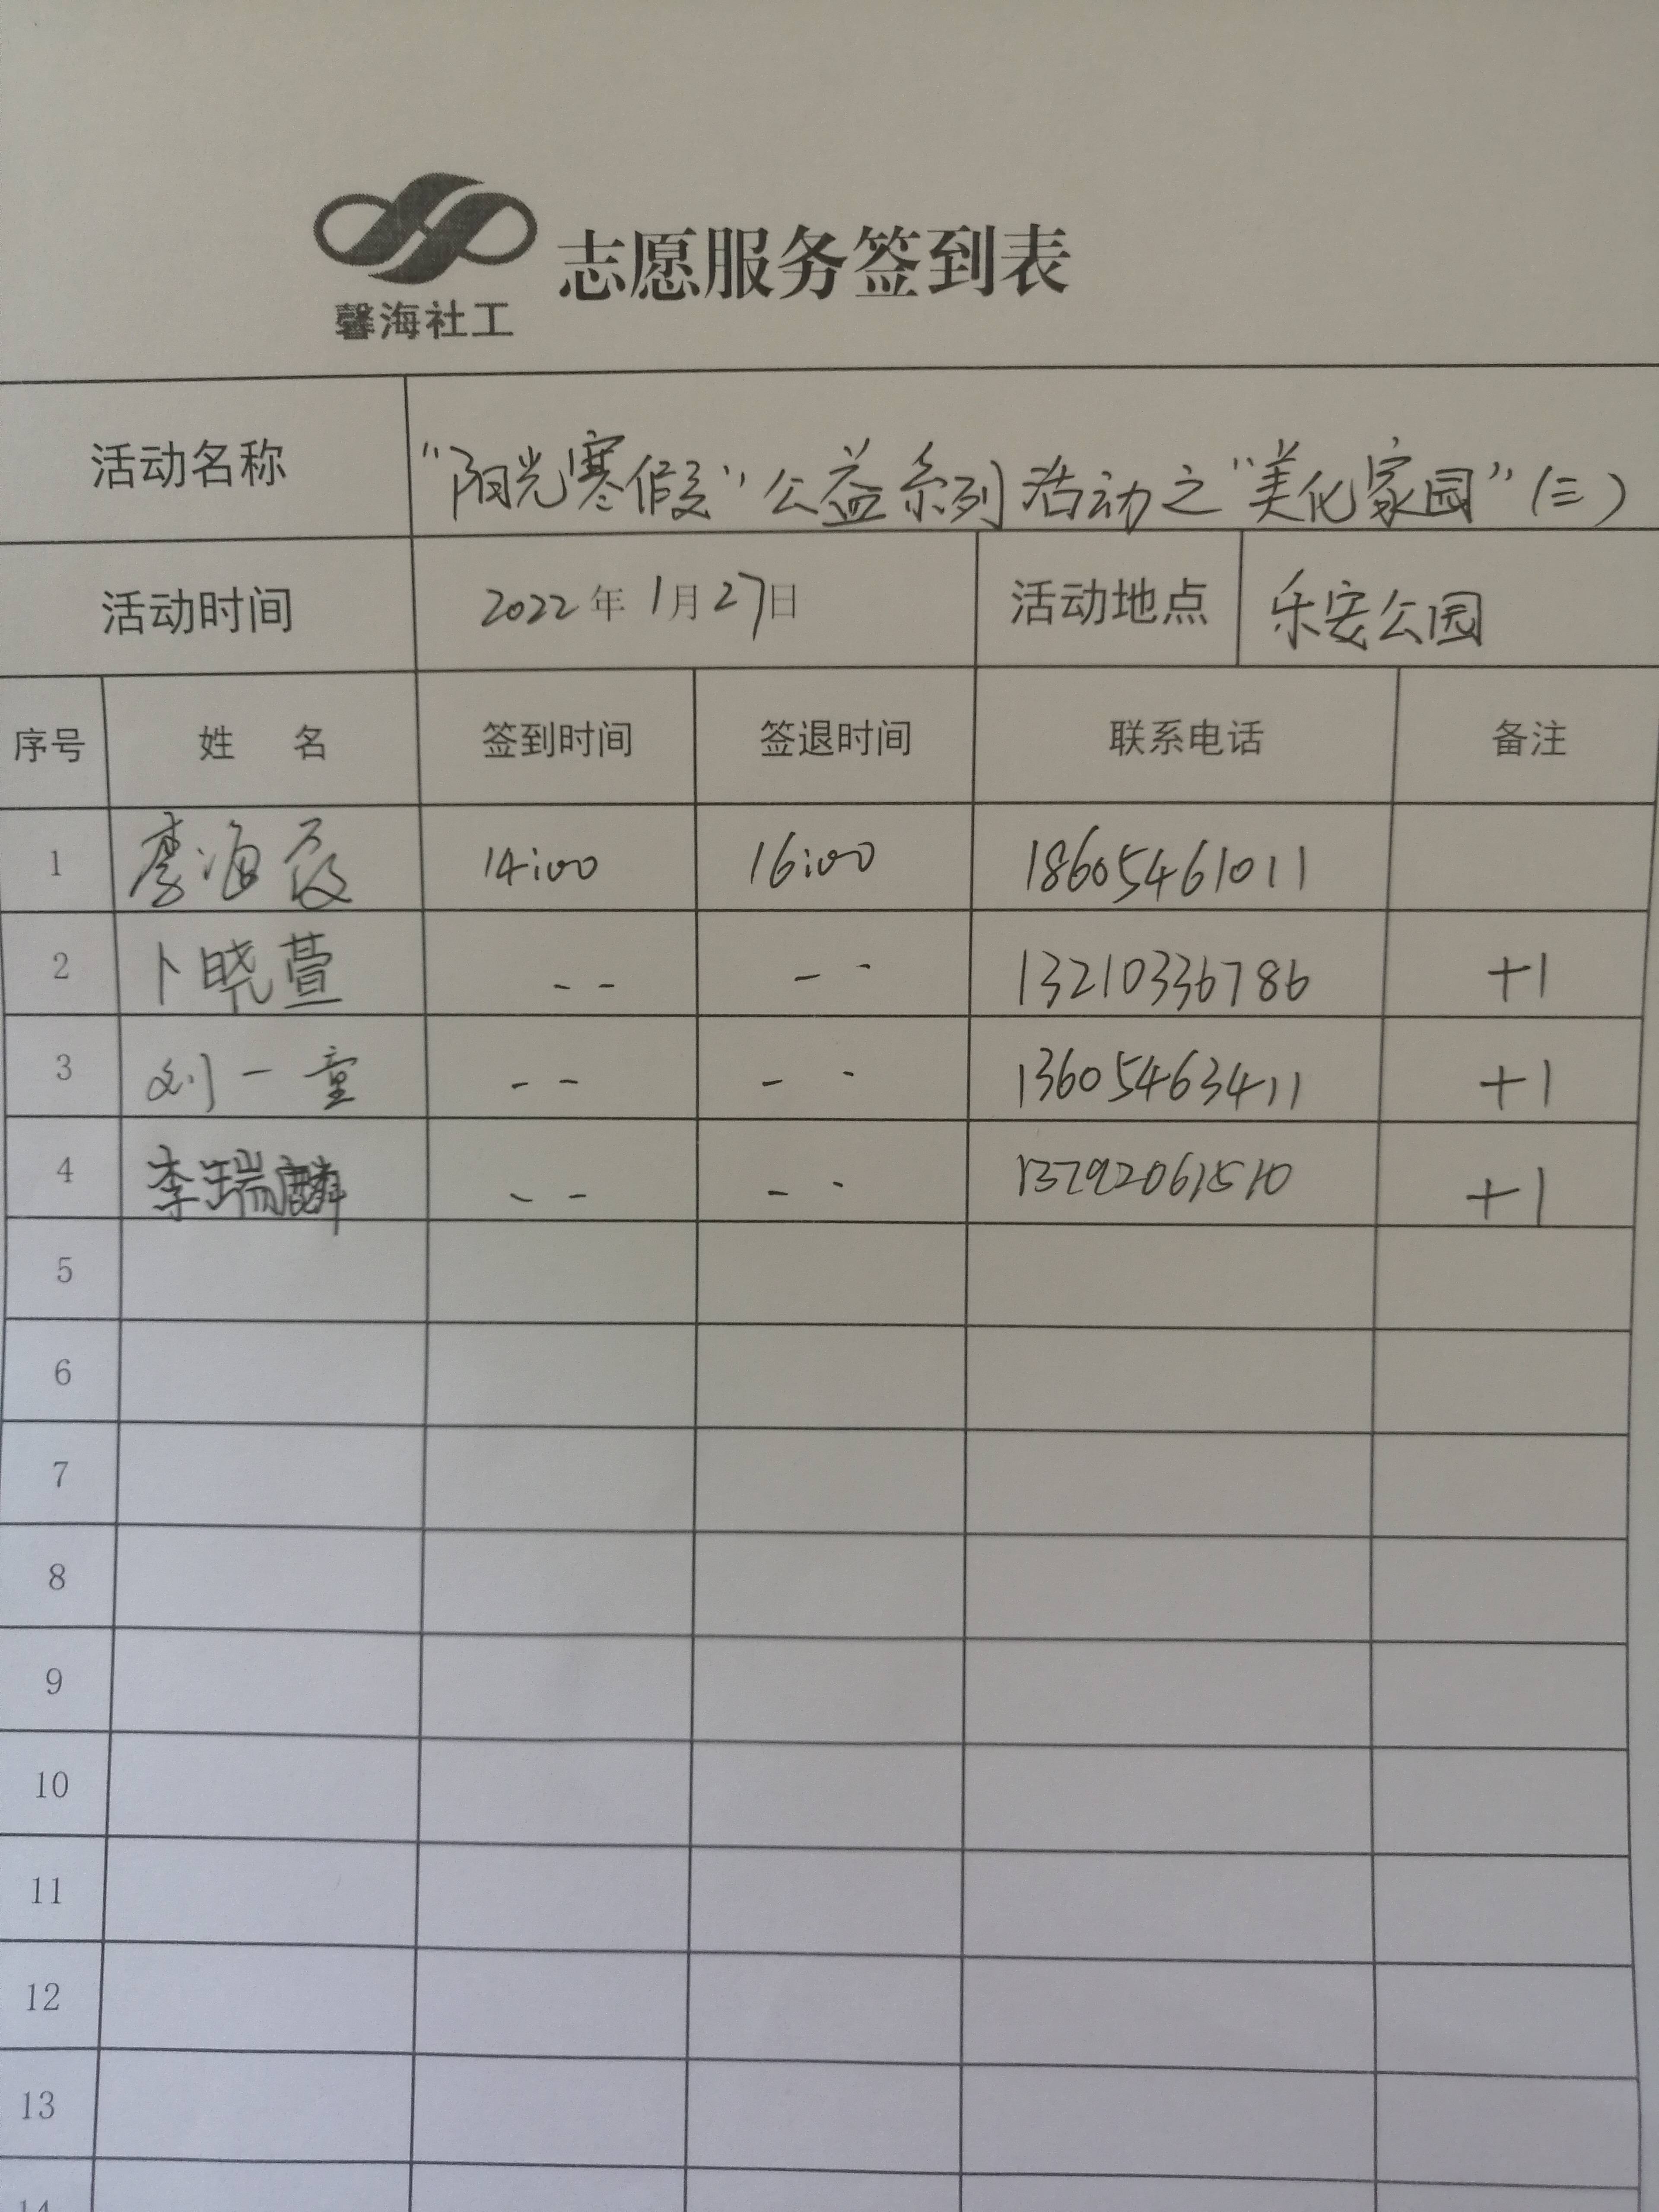 志愿服务签到表
馨海社工
活动名称 “阳光寒假”公益系列活动之“美化家园”(三)
活动时间 2022年1月27日 活动地点 乐安公园
序号 姓 名 签到时间 签退时间 联系电话 备注
1 李海霞 14:00 16:00 18605461011
2 卜晓萱 -- -- 13210336786 +1
3 刘一童 -- -- 13605463411 +1
4 李瑞麟 -- -- 13792061510 +1
5
6
7
8
9
10
11
12
13
14